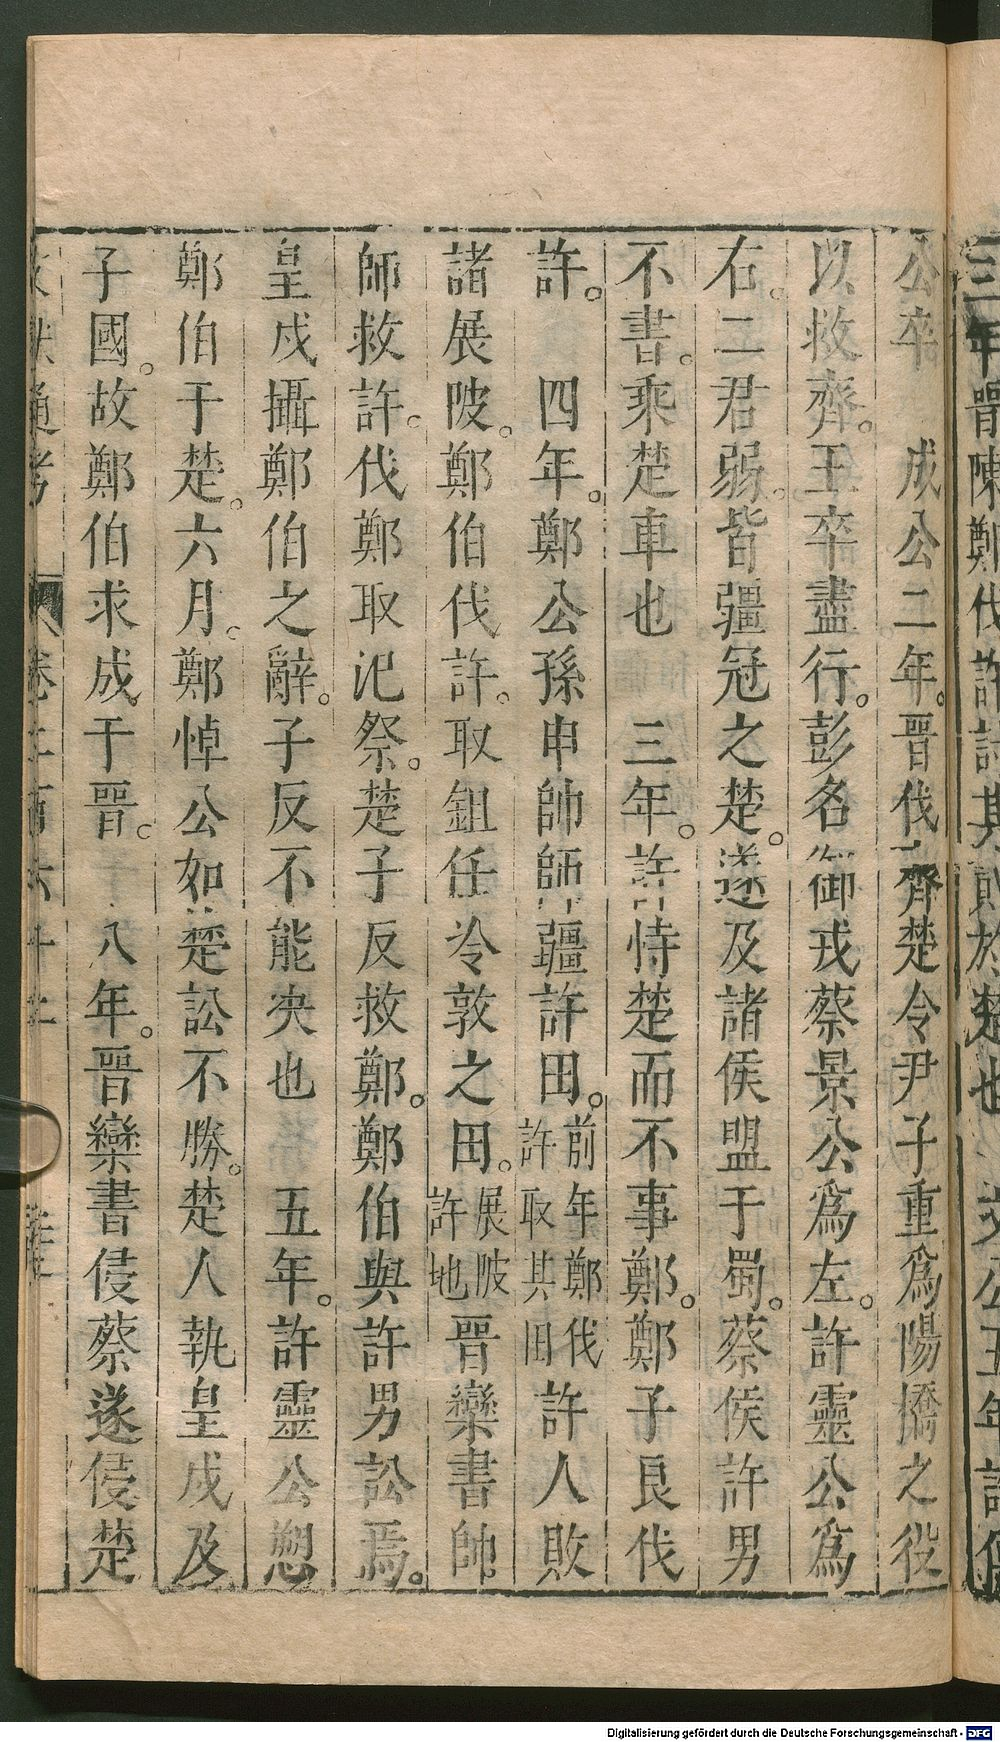 三年晉陳鄭伐許討其貳於楚也
公卒　成公二年。晉伐齊楚令尹子重爲陽橋之役
以救齊。王卒盡行。彭名御戎蔡景公爲左。許靈公爲
右。二君弱。皆彊冠之楚。遂及諸侯盟于蜀。蔡侯許男
不書。乘楚車也　三年。許恃楚而不事鄭。鄭子良伐
許。　四年。鄭公孫申帥師疆許田。前年鄭伐許取其田許人敗
諸展陂。鄭伯伐許。取鉏任冷敦之田。展陂許地晉欒書帥
師救許。伐鄭取汜祭。楚子反救鄭。鄭伯與許男訟焉。
皇戍攝鄭伯之辭。子反不能決也　五年。許靈公愬
鄭伯于楚。六月。鄭悼公如楚訟不勝。楚人執皇戍及
子國。故鄭伯求成于晉。　八年。晉欒書侵蔡遂侵楚
通考　卷二百六十二
Digitalisierung gefördert durch die Deutsche Forschungsgemeinschaft - DFG